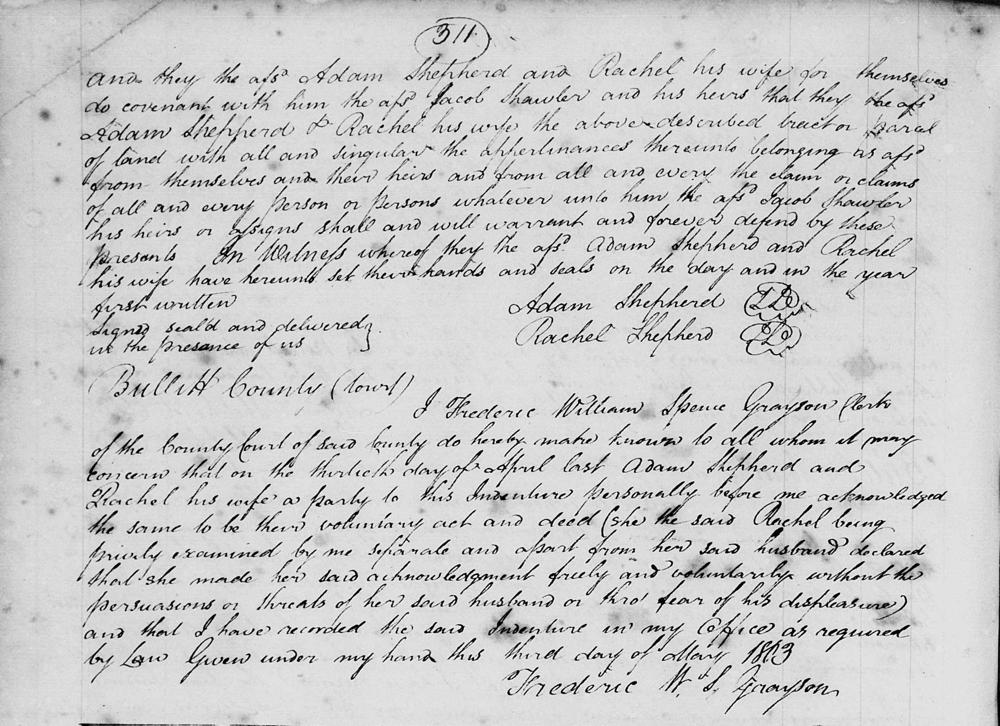 311
and they the afsd Adam Shepherd and Rachel his wife for themselves
do covenant with him the afsd Jacob Shawler and his heirs that they the afsd
Adam Shepperd & Rachel his wife the above described tract or parcel
of land with all and singular the appertinances thereunto belonging as afsd
from themselves and their heirs and from all and every the claim or claims
of all and every person or persons whatever unto him the afsd Jacob Shawler
his heirs or assigns shall and will warrant and forever defend by these
presents In Witness whereof they the afsd Adam Shepherd and Rachel
his wife have hereunto set their hands and seals on the day and in the year
first written
Adam Shepherd
Signd seal'd and delivered
Rachel Shepherd
in the presence of us
Bullitt County
I Frederic William Spence Grayson Clerk
of the County Court of said County do hereby make known to all whom it may
concern that on the thirtieth day of April last Adam Shepherd and
Rachel his wife a party to this Indenture personally before me acknowledged
the same to be their voluntary act and deed (she the said Rachel being
privily examined by me separate and apart from her said husband declared
that she made her said acknowledgment freely and voluntarily without the
persuasions or threats of her said husband or thro' fear of his displeasure)
and that I have recorded the said Indenture in my Office as required
by Law Given under my hand this third day of May 1803
Frederic W. S. Grayson